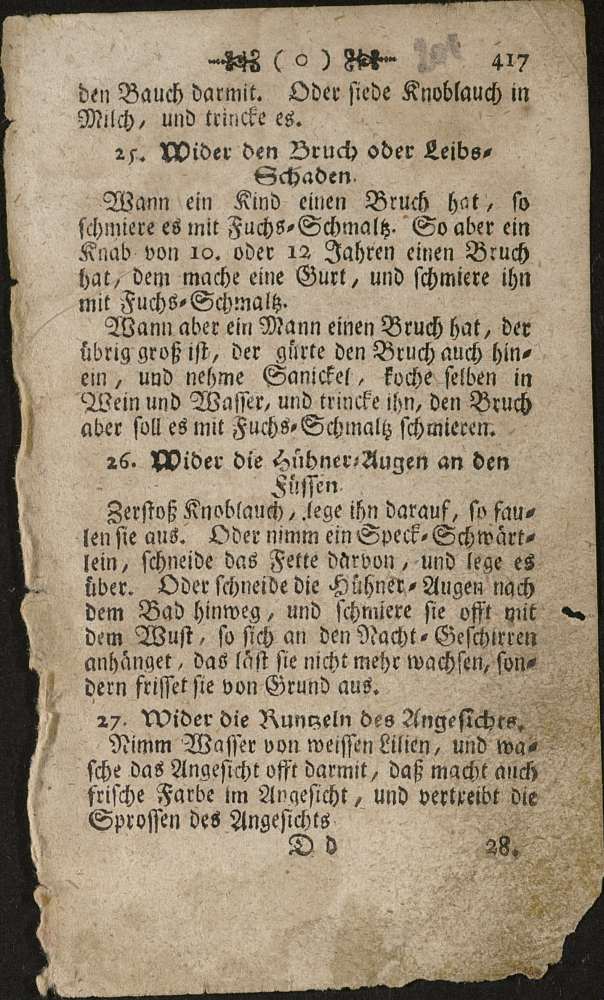 ( o ) 417
den Bauch darmit. Oder siede Knoblauch in
Milch, und trincke es.
25. Wider den Bruch oder Leibs-
Schaden.
Wann ein Kind einen Bruch hat, so
schmiere es mit Fuchs-Schmaltz. So aber ein
Knab von 10. oder 12 Jahren einen Bruch
hat, dem mache eine Gurt, und schmiere ihn
mit Fuchs-Schmaltz.
Wann aber ein Mann einen Bruch hat, der
übrig groß ist, der gürte den Bruch auch hin-
ein, und nehme Sanickel, koche selben in
Wein und Wasser, und trincke ihn, den Bruch
aber soll es mit Fuchs-Schmaltz schmieren.
26. Wider die Hühner-Augen an den
Füssen
Zerstoß Knoblauch, lege ihn darauf, so fau-
len sie aus. Oder nimm ein Speck-Schwärt-
lein, schneide das Fette darvon, und lege es
über. Oder schneide die Hühner-Augen nach
dem Bad hinweg, und schmiere sie offt mit
dem Wust, so sich an den Nacht-Geschirren
anhänget, das läst sie nicht mehr wachsen, son-
dern frisset sie von Grund aus.
27. Wider die Runtzeln des Angesichts.
Nimm Wasser von weissen Lilien, und wa-
sche das Angesicht offt darmit, daß macht auch
frische Farbe im Angesicht, und vertreibt die
Sprossen des Angesichts
D d 28.